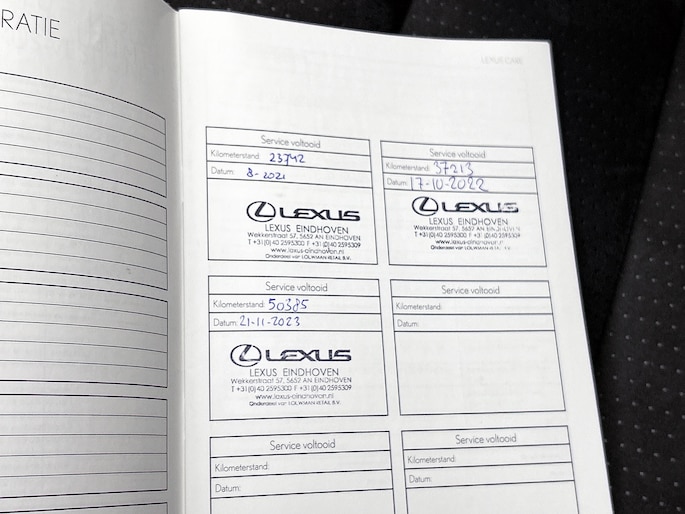 RATIE
LEXUS CARE
Service voltooid
Kilometerstand: 23742
Datum: 8-2021
LEXUS
LEXUS EINDHOVEN
Wekkerstraat 57, 5652 AN EINDHOVEN
T +31(0)40 2595300 F +31(0)40 2595309
www.lexus-eindhoven.nl
Onderdeel van LOUWMAN RETAIL B.V.
Service voltooid
Kilometerstand: 37213
Datum: 17-10-2022
LEXUS
LEXUS EINDHOVEN
Wekkerstraat 57, 5652 AN EINDHOVEN
T +31(0)40 2595300 F +31(0)40 2595309
www.lexus-eindhoven.nl
Onderdeel van LOUWMAN RETAIL B.V.
Service voltooid
Kilometerstand: 50385
Datum: 21-11-2023
LEXUS
LEXUS EINDHOVEN
Wekkerstraat 57, 5652 AN EINDHOVEN
T +31(0)40 2595300 F +31(0)40 2595309
www.lexus-eindhoven.nl
Onderdeel van LOUWMAN RETAIL B.V.
Service voltooid
Kilometerstand:
Datum:
Service voltooid
Kilometerstand:
Datum:
Service voltooid
Kilometerstand:
Datum: